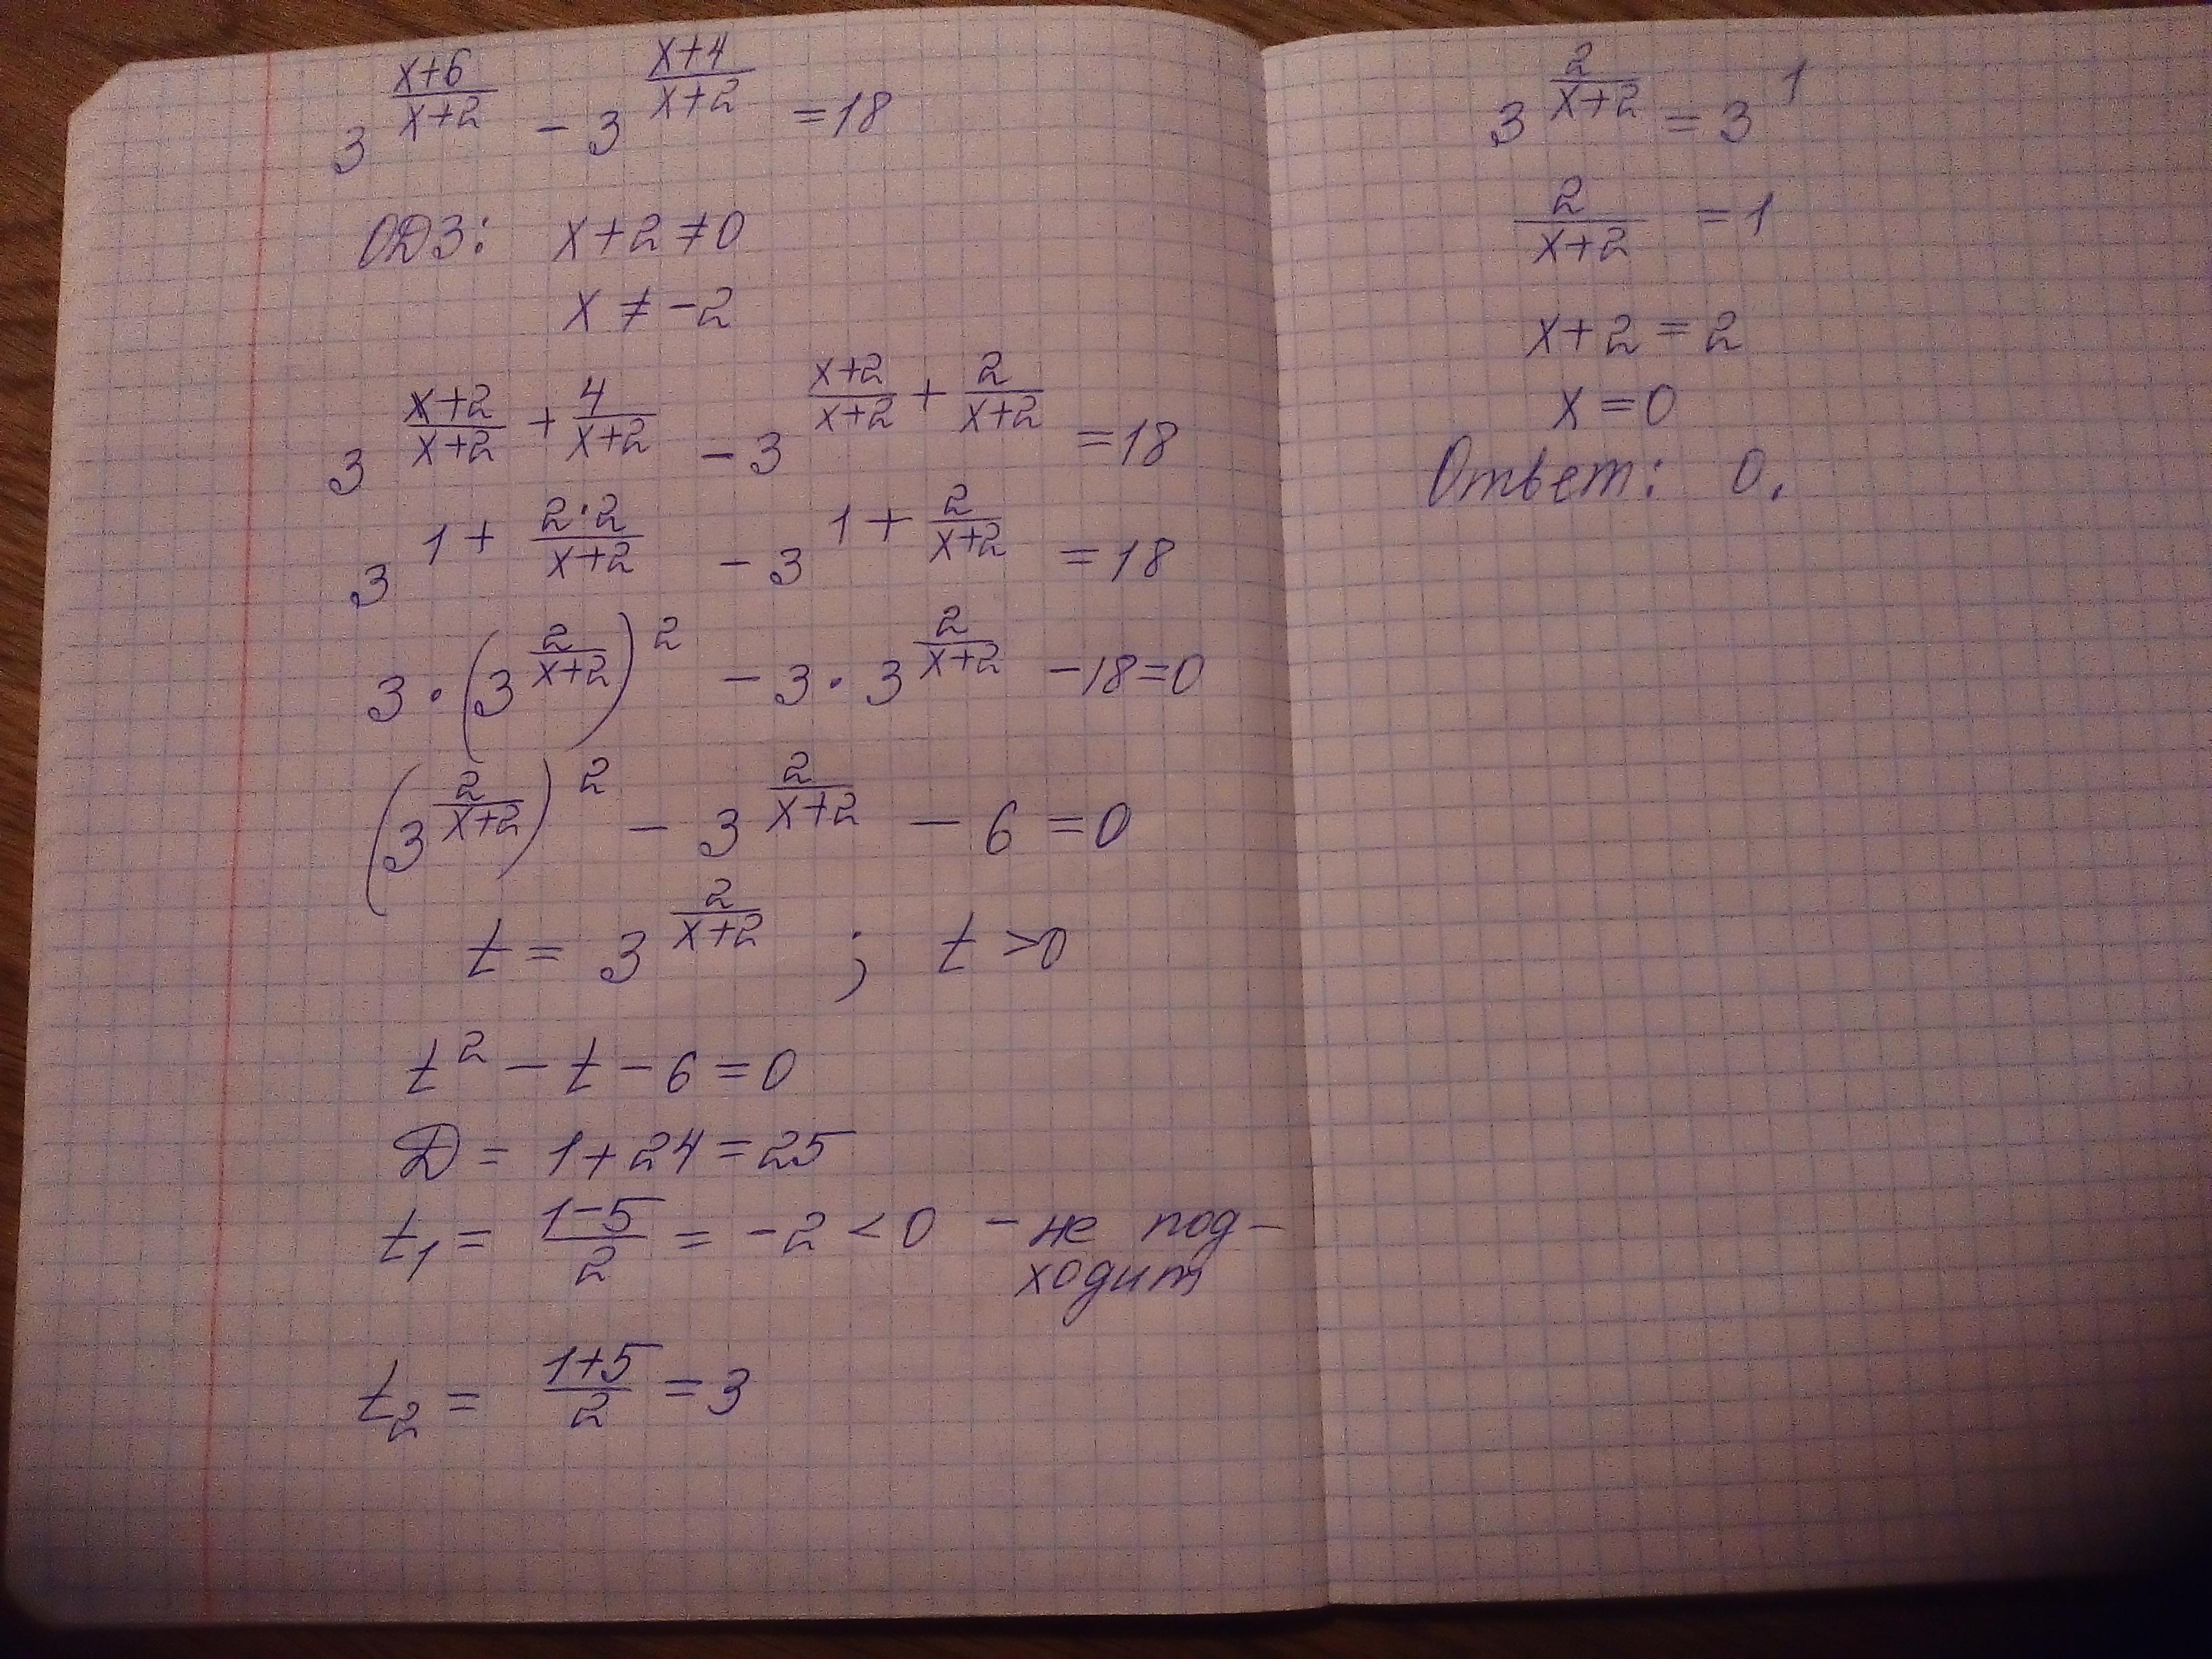 3^((x+6)/(x+2)) - 3^((x+4)/(x+2)) = 18
ОДЗ: x+2≠0
x ≠ -2
3^((x+2)/(x+2) + 4/(x+2)) - 3^((x+2)/(x+2) + 2/(x+2)) = 18
3^(1 + (2·2)/(x+2)) - 3^(1 + 2/(x+2)) = 18
3·(3^(2/(x+2)))^2 - 3·3^(2/(x+2)) - 18 = 0
(3^(2/(x+2)))^2 - 3^(2/(x+2)) - 6 = 0
t = 3^(2/(x+2)) ; t > 0
t^2 - t - 6 = 0
D = 1 + 24 = 25
t₁ = (1-5)/2 = -2 < 0 - не под-
ходит
t₂ = (1+5)/2 = 3
3^(2/(x+2)) = 3^1
2/(x+2) = 1
x + 2 = 2
x = 0
Ответ: 0.